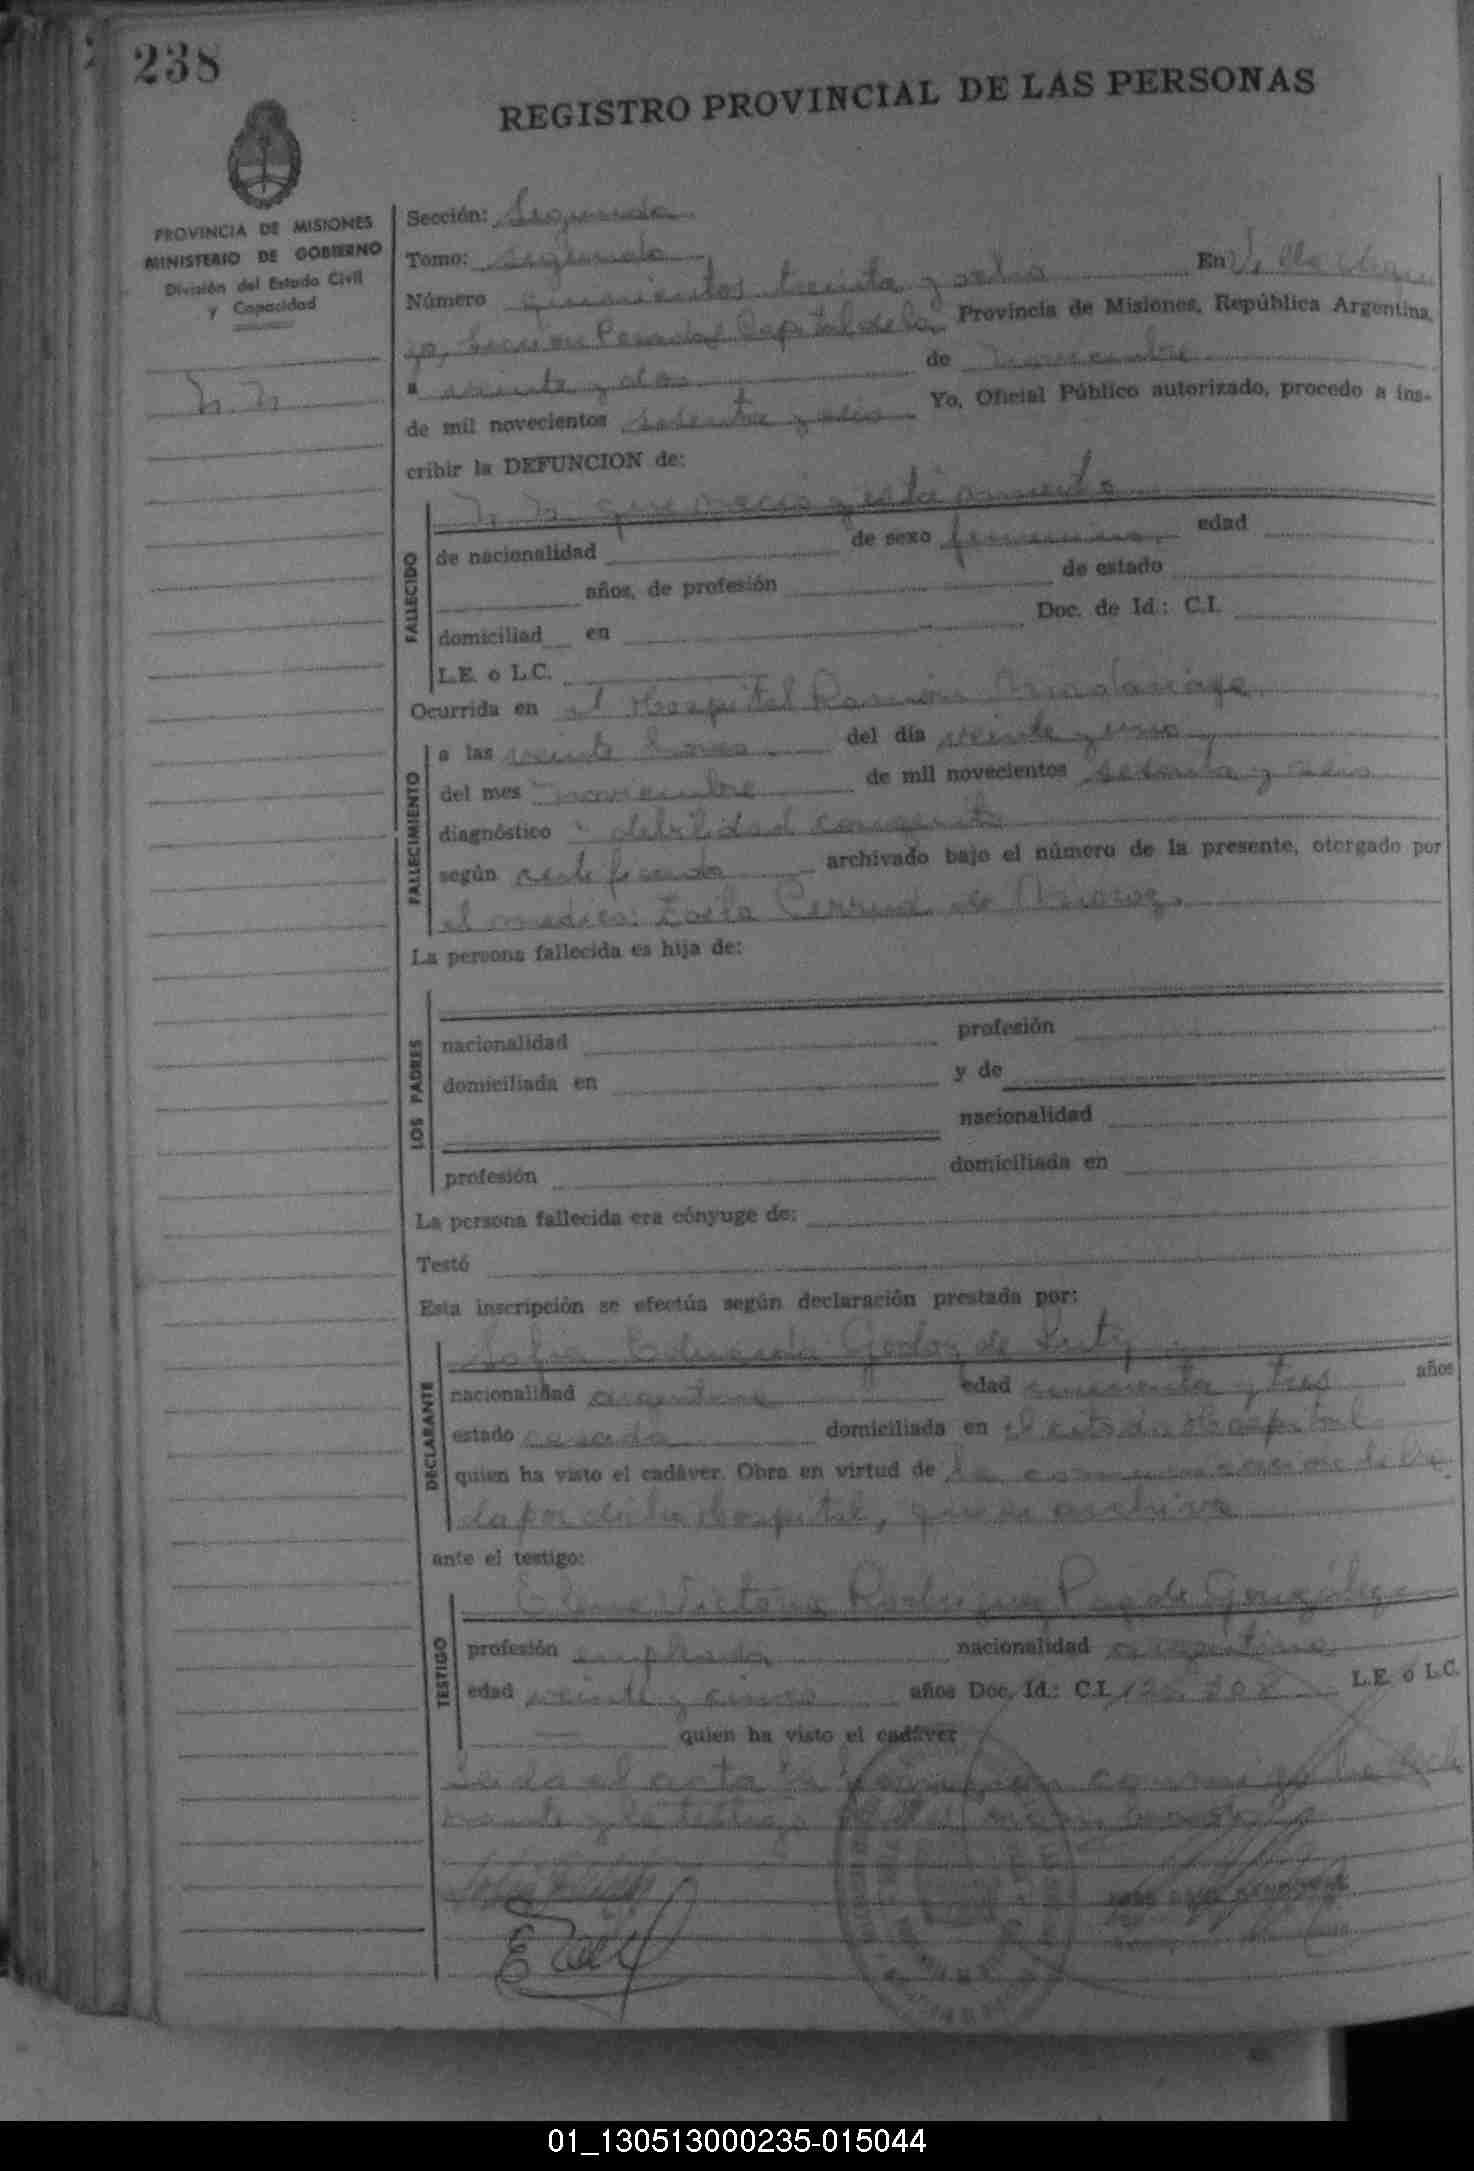 238
REGISTRO PROVINCIAL DE LAS PERSONAS
PROVINCIA DE MISIONES
MINISTERIO DE GOBIERNO
División del Estado Civil
y Capacidad
N. N
Sección: Segunda
Tomo: segundo
Número quinientos treinta y ocho En Villa
Capital de la Provincia de Misiones, República Argentina,
a veinte y dos de noviembre
de mil novecientos setenta y seis Yo, Oficial Público autorizado, procedo a ins-
cribir la DEFUNCION de:
N. N. que nació y está muerta
FALLECIDO
de nacionalidad de sexo femenino, edad
años, de profesión de estado
domiciliad en Doc. de Id.: C.I.
L.E. o L.C.
Ocurrida en el Hospital Ramón Madariaga
FALLECIMIENTO
a las veinte horas del día veinte y uno
del mes noviembre de mil novecientos setenta y seis
diagnóstico debilidad congenita
según certificado archivado bajo el número de la presente, otorgado por
el medico: Zoila de
La persona fallecida es hija de:
LOS PADRES
nacionalidad profesión
domiciliada en y de
nacionalidad
profesión domiciliada en
La persona fallecida era cónyuge de:
Testó
Esta inscripción se efectúa según declaración prestada por:
DECLARANTE
Sofia Eduarda Godoy de
nacionalidad argentina edad cincuenta y tres años
estado casada domiciliada en el citado Hospital
quien ha visto el cadáver. Obra en virtud de la
da por dicho Hospital, que se archiva
ante el testigo:
TESTIGO
Elena Victoria Rodriguez Paz de González
profesión empleada nacionalidad argentina
edad veinte y cinco años Doc. Id.: C.I. L.E. ó L.C.
quien ha visto el cadáver
Leida el acta la firman conmigo la decla
rante y la testigo
01_130513000235-015044